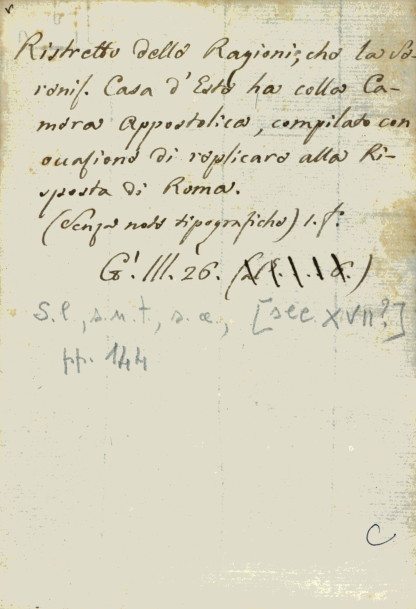 Ristretto delle Ragioni, che la Se-
renis. Casa d'Este ha colla Ca-
mera Appostolica, compilato con
ocasione di replicare alla Ri-
sposta di Roma.
(Senza note tipografiche) 1. f.°
G. III. 26.
S.l., s.n.t., s.a., [sec. XVII?]
pp. 144
C